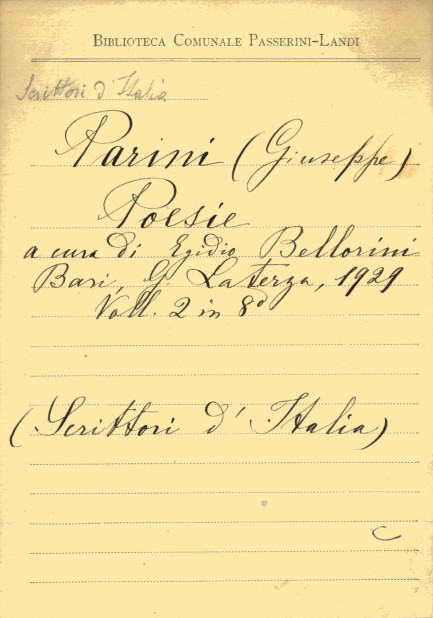 BIBLIOTECA COMUNALE PASSERINI-LANDI
Scrittori d'Italia
Parini (Giuseppe)
Poesie
a cura di Egidio Bellorini
Bari, G. Laterza, 1929
Voll. 2 in 8°
(Scrittori d'Italia)
C